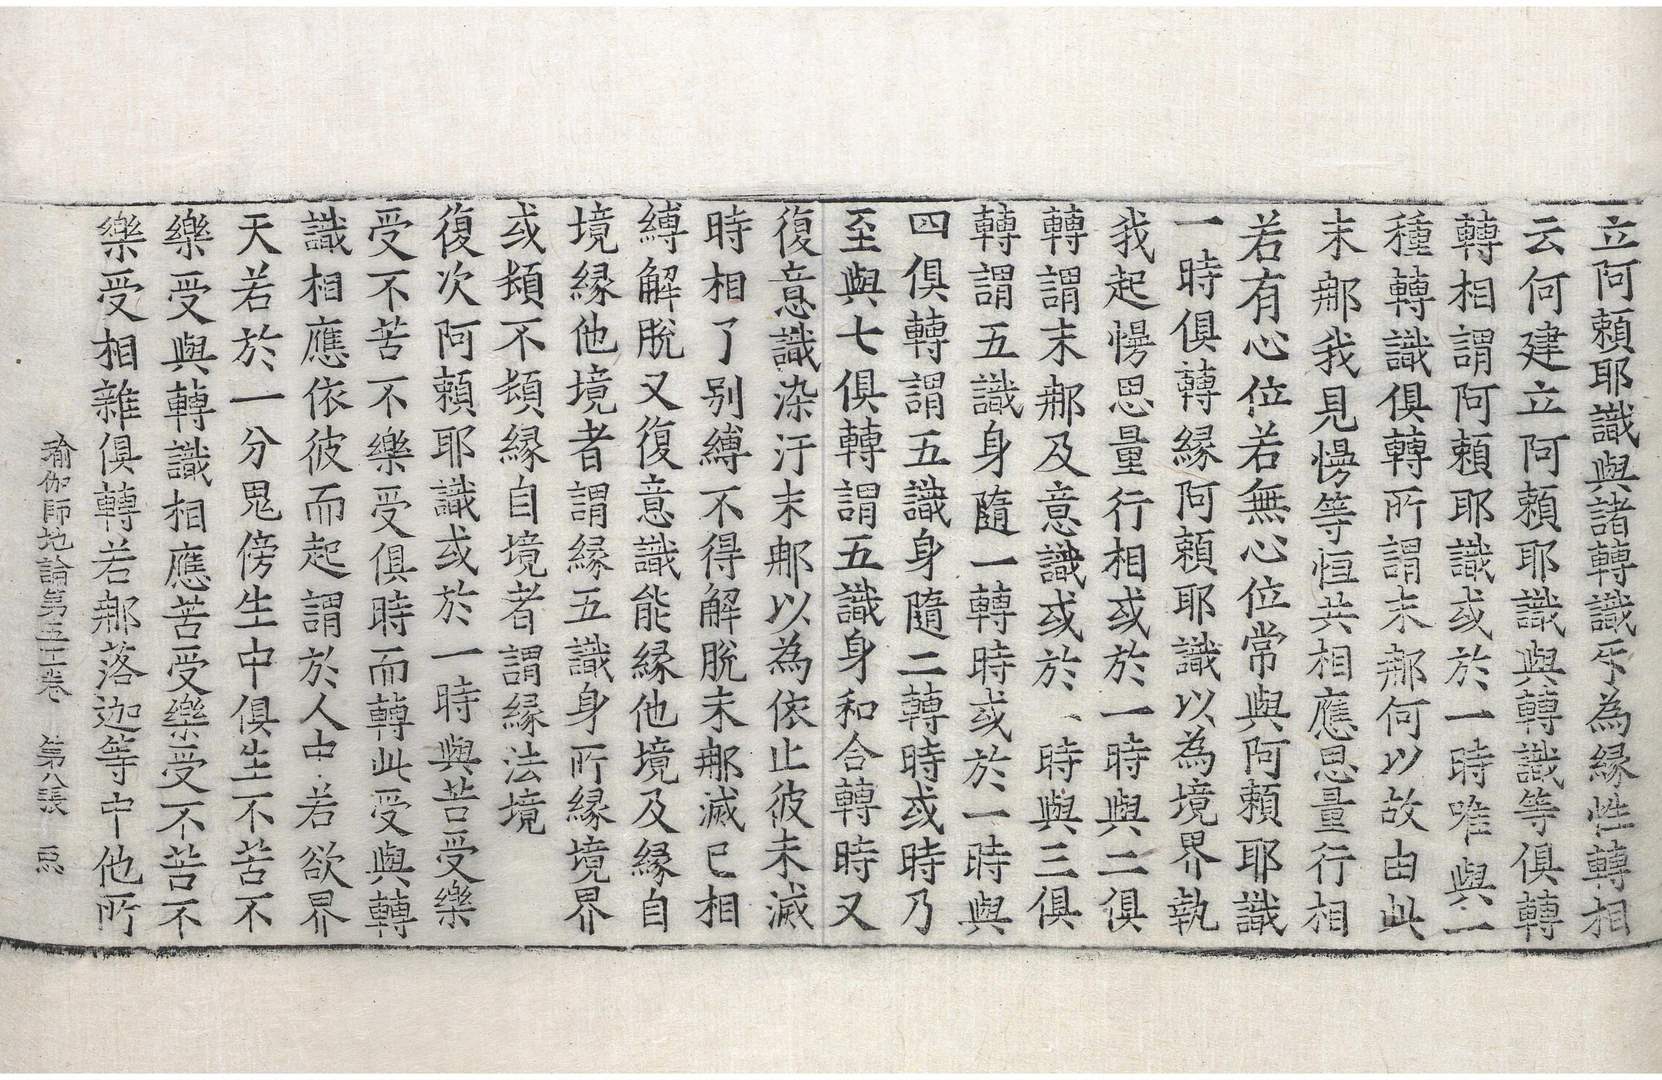 立阿頼耶識與諸轉識𠄔為縁性轉相
云何建立阿頼耶識與轉識等俱轉
轉相謂阿頼耶識或於一時唯與一
種轉識俱轉所謂末那何以故由此
末那我見慢等恒共相應思量行相
若有心位若無心位常與阿頼耶識
一時俱轉縁阿頼耶識以為境界執
我起慢思量行相或於一時與二俱
轉謂末那及意識或於一時與三俱
轉謂五識身隨一轉時或於一時與
四俱轉謂五識身隨二轉時或時乃
至與七俱轉謂五識身和合轉時又
復意識染汙末那以為依止彼未滅
時相了別縛不得解脫末那滅已相
縛解脫又復意識能縁他境及縁自
境縁他境者謂縁五識身所縁境界
或頓不頓縁自境者謂縁法境
復次阿頼耶識或於一時與苦受樂
受不苦不樂受俱時而轉此受與轉
識相應依彼而起謂於人中若欲界
天若於一分鬼傍生中俱生不苦不
樂受與轉識相應苦受樂受不苦不
樂受相雜俱轉若那落迦等中他所
瑜伽師地論第五十一卷 第八張 惡